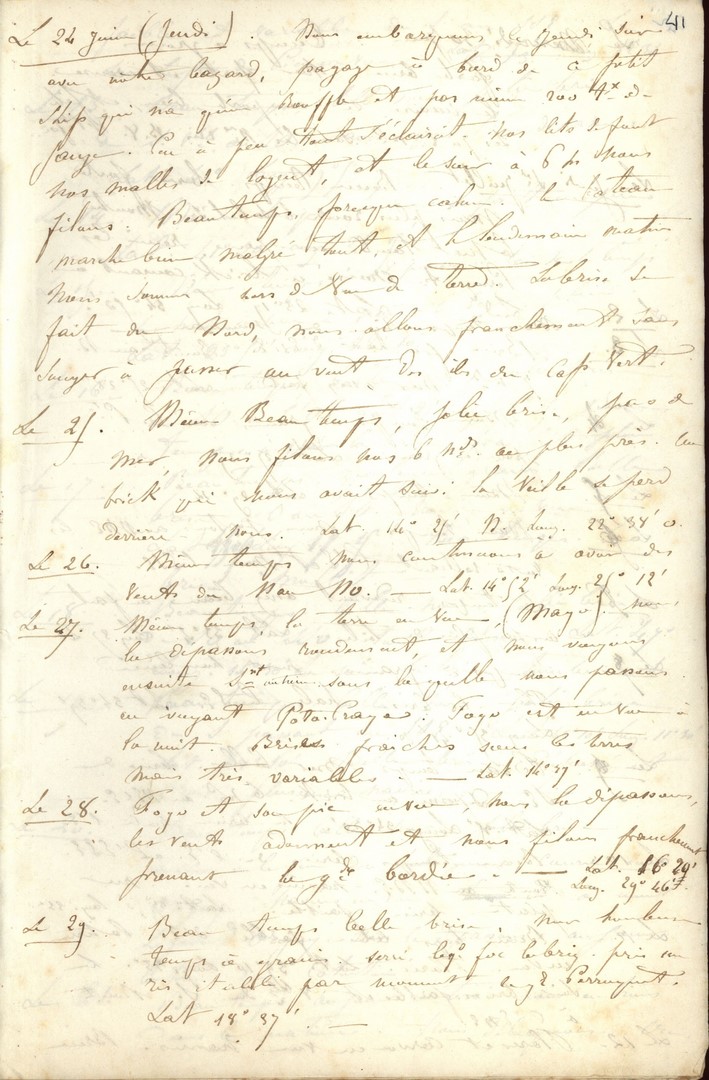 41
Le 24 juin (Jeudi). Nous embarquons ce jeudi soir
avec notre bazard, pagage à bord de ce petit
Ship qui n'a qu'un et pas même 200 tx de
jauge. Peu à peu tout s'éclaircit. nos lits se font
nos malles se logent, et le soir à 6 h nous
filons. Beau temps, presque calme. le bateau
marche bien malgré tout, et le lendemain matin
nous sommes hors de vue de terre. La brise se
fait du Nord, nous allons franchement sans
songer à passer au vent des iles du Cap Vert.
Le 25. Même Beau temps, jolie brise, pas de
mer, nous filons nos 6 nds. au plus près. Un
brick qui nous avait suivi la veille se perd
derrière nous. Lat. 14° 25' N. Long. 22° 34' O.
Le 26. Même temps nous continuons à avoir des
vents du Nou No. — Lat. 14° 52' Long. 25° 12'
Le 27. Même temps, la terre en vue, (Mayo). nous
la dépassons rondement, et nous voyons
ensuite St sous laquelle nous passons
en voyant Porto-Praya. Fogo est en vue à
la nuit. Brises fraîches sous les terres
mais très variables. — Lat. 14° 37'
Le 28. Fogo et son pic en vue, nous la dépassons,
les vents adonnent et nous filons franchement
prenant la gde bordée. — Lat. 16° 29'
Long. 29° 46'
Le 29. Beau temps belle brise, mer houleuse
temps à grains. serré le gd foc le brig. pris un
ris établi par moment le gd Perroquet.
Lat 18° 37'. —